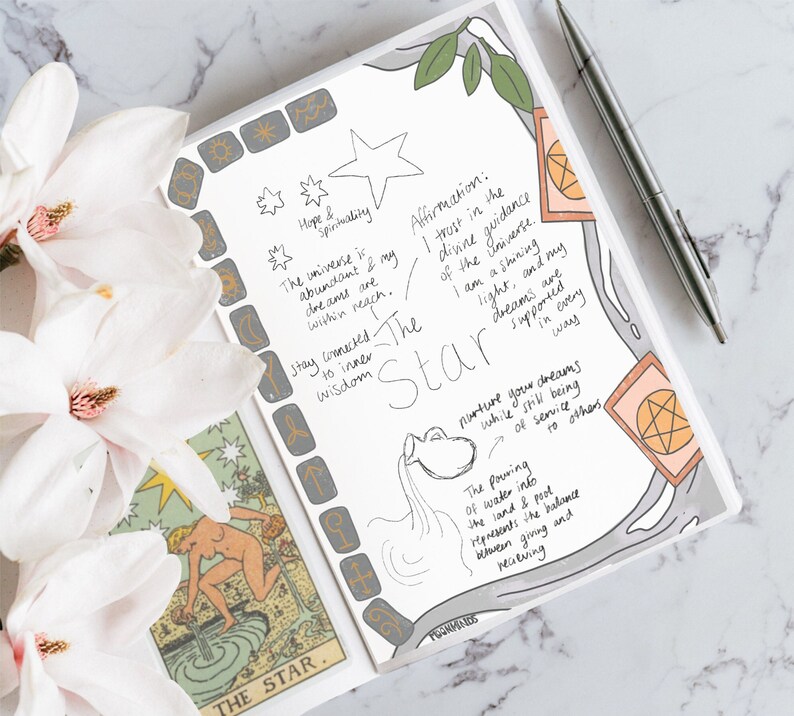 Hope &
Spirituality
The universe is
abundant & my
dreams are
within reach.
Stay connected
to inner
wisdom
Affirmation:
I trust in the
divine guidance
of the universe.
I am a shining
light, and my
dreams are
supported
in every
way
The
Star
nurture your dreams
while still being
of service
to others
The pouring
of water into
the land & pool
represents the balance
between giving and
recieving
MOONMINDS
THE STAR.